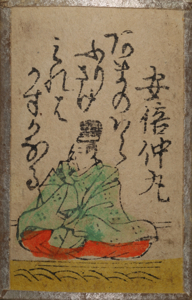 安倍仲丸
あまのはら
ふりさけ
みれは
かすかなる